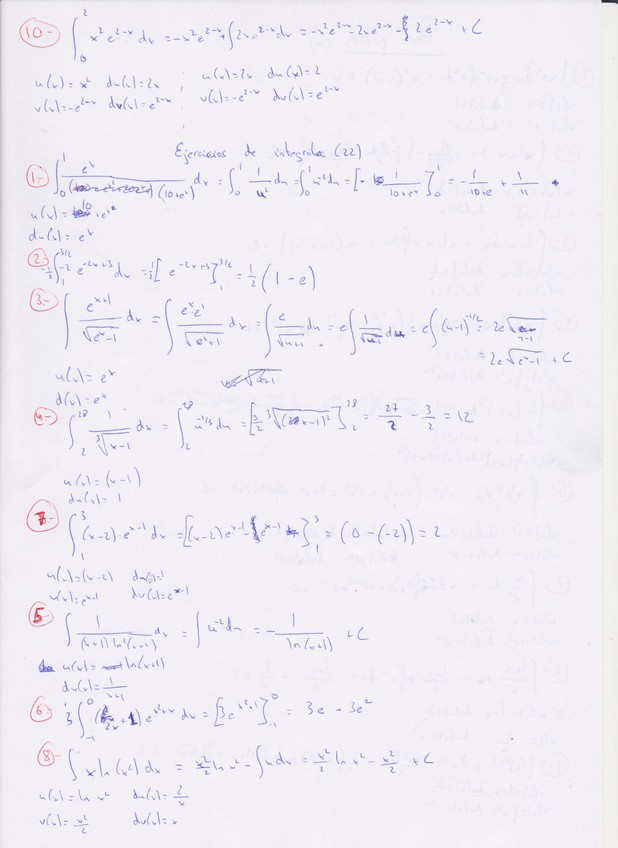 10.- ∫₀² x² e^(2-x) dx = -x² e^(2-x) + ∫ 2x e^(2-x) dx = -x² e^(2-x) - 2x e^(2-x) - 2e^(2-x) + C
u(x) = x² du(x) = 2x u(x) = 2x du(x) = 2
v(x) = -e^(2-x) dv(x) = e^(2-x) v(x) = -e^(2-x) dv(x) = e^(2-x)
Ejercicios de integrales (22)
1.- ∫₀¹ e^x / (10+e^x) dx = ∫₀¹ 1/u² du = ∫₀¹ u^(-2) du = [- 1/(10+e^x)]₀¹ = -1/(10+e) + 1/11
u(x) = 10 + e^x
du(x) = e^x
2.- -1/2 ∫₁^(3/2) -2 e^(-2x+3) dx = -1/2 [e^(-2x+3)]₁^(3/2) = -1/2 (1 - e)
3.- ∫ e^(x+1)/√(e^x-1) dx = ∫ e^x·e^1/√(e^x-1) dx = ∫ e/√(u-1) du = e ∫ 1/√(u-1) du = e ∫ (u-1)^(-1/2) = 2e√(u-1)
= 2e √(e^x-1) + C
u(x) = e^x
d(x) = e^x
4.- ∫₂²⁸ 1/∛(x-1) dx = ∫₂²⁸ u^(-1/3) du = [3/2 ∛((x-1)²)]₂²⁸ = 27/2 - 3/2 = 12
u(x) = (x-1)
du(x) = 1
7.- ∫₁³ (x-2)·e^(x-1) dx = [(x-2) e^(x-1) - e^(x-1)]₁³ = (0-(-2)) = 2
u(x) = (x-2) du(x) = 1
v(x) = e^(x-1) dv(x) = e^(x-1)
5.- ∫ 1/((x+1) ln²(x+1)) dx = ∫ u^(-2) du = - 1/ln(x+1) + C
u(x) = ln(x+1)
du(x) = 1/(x+1)
6.- 3 ∫₋₁⁰ (2x+1) e^(x²+x) dx = [3e^(x²+1)]₋₁⁰ = 3e - 3e²
8.- ∫ x ln(x²) dx = x²/2 ln x² - ∫ x dx = x²/2 ln x² - x²/2 + C
u(x) = ln x² du(x) = 2/x
v(x) = x²/2 dv(x) = x